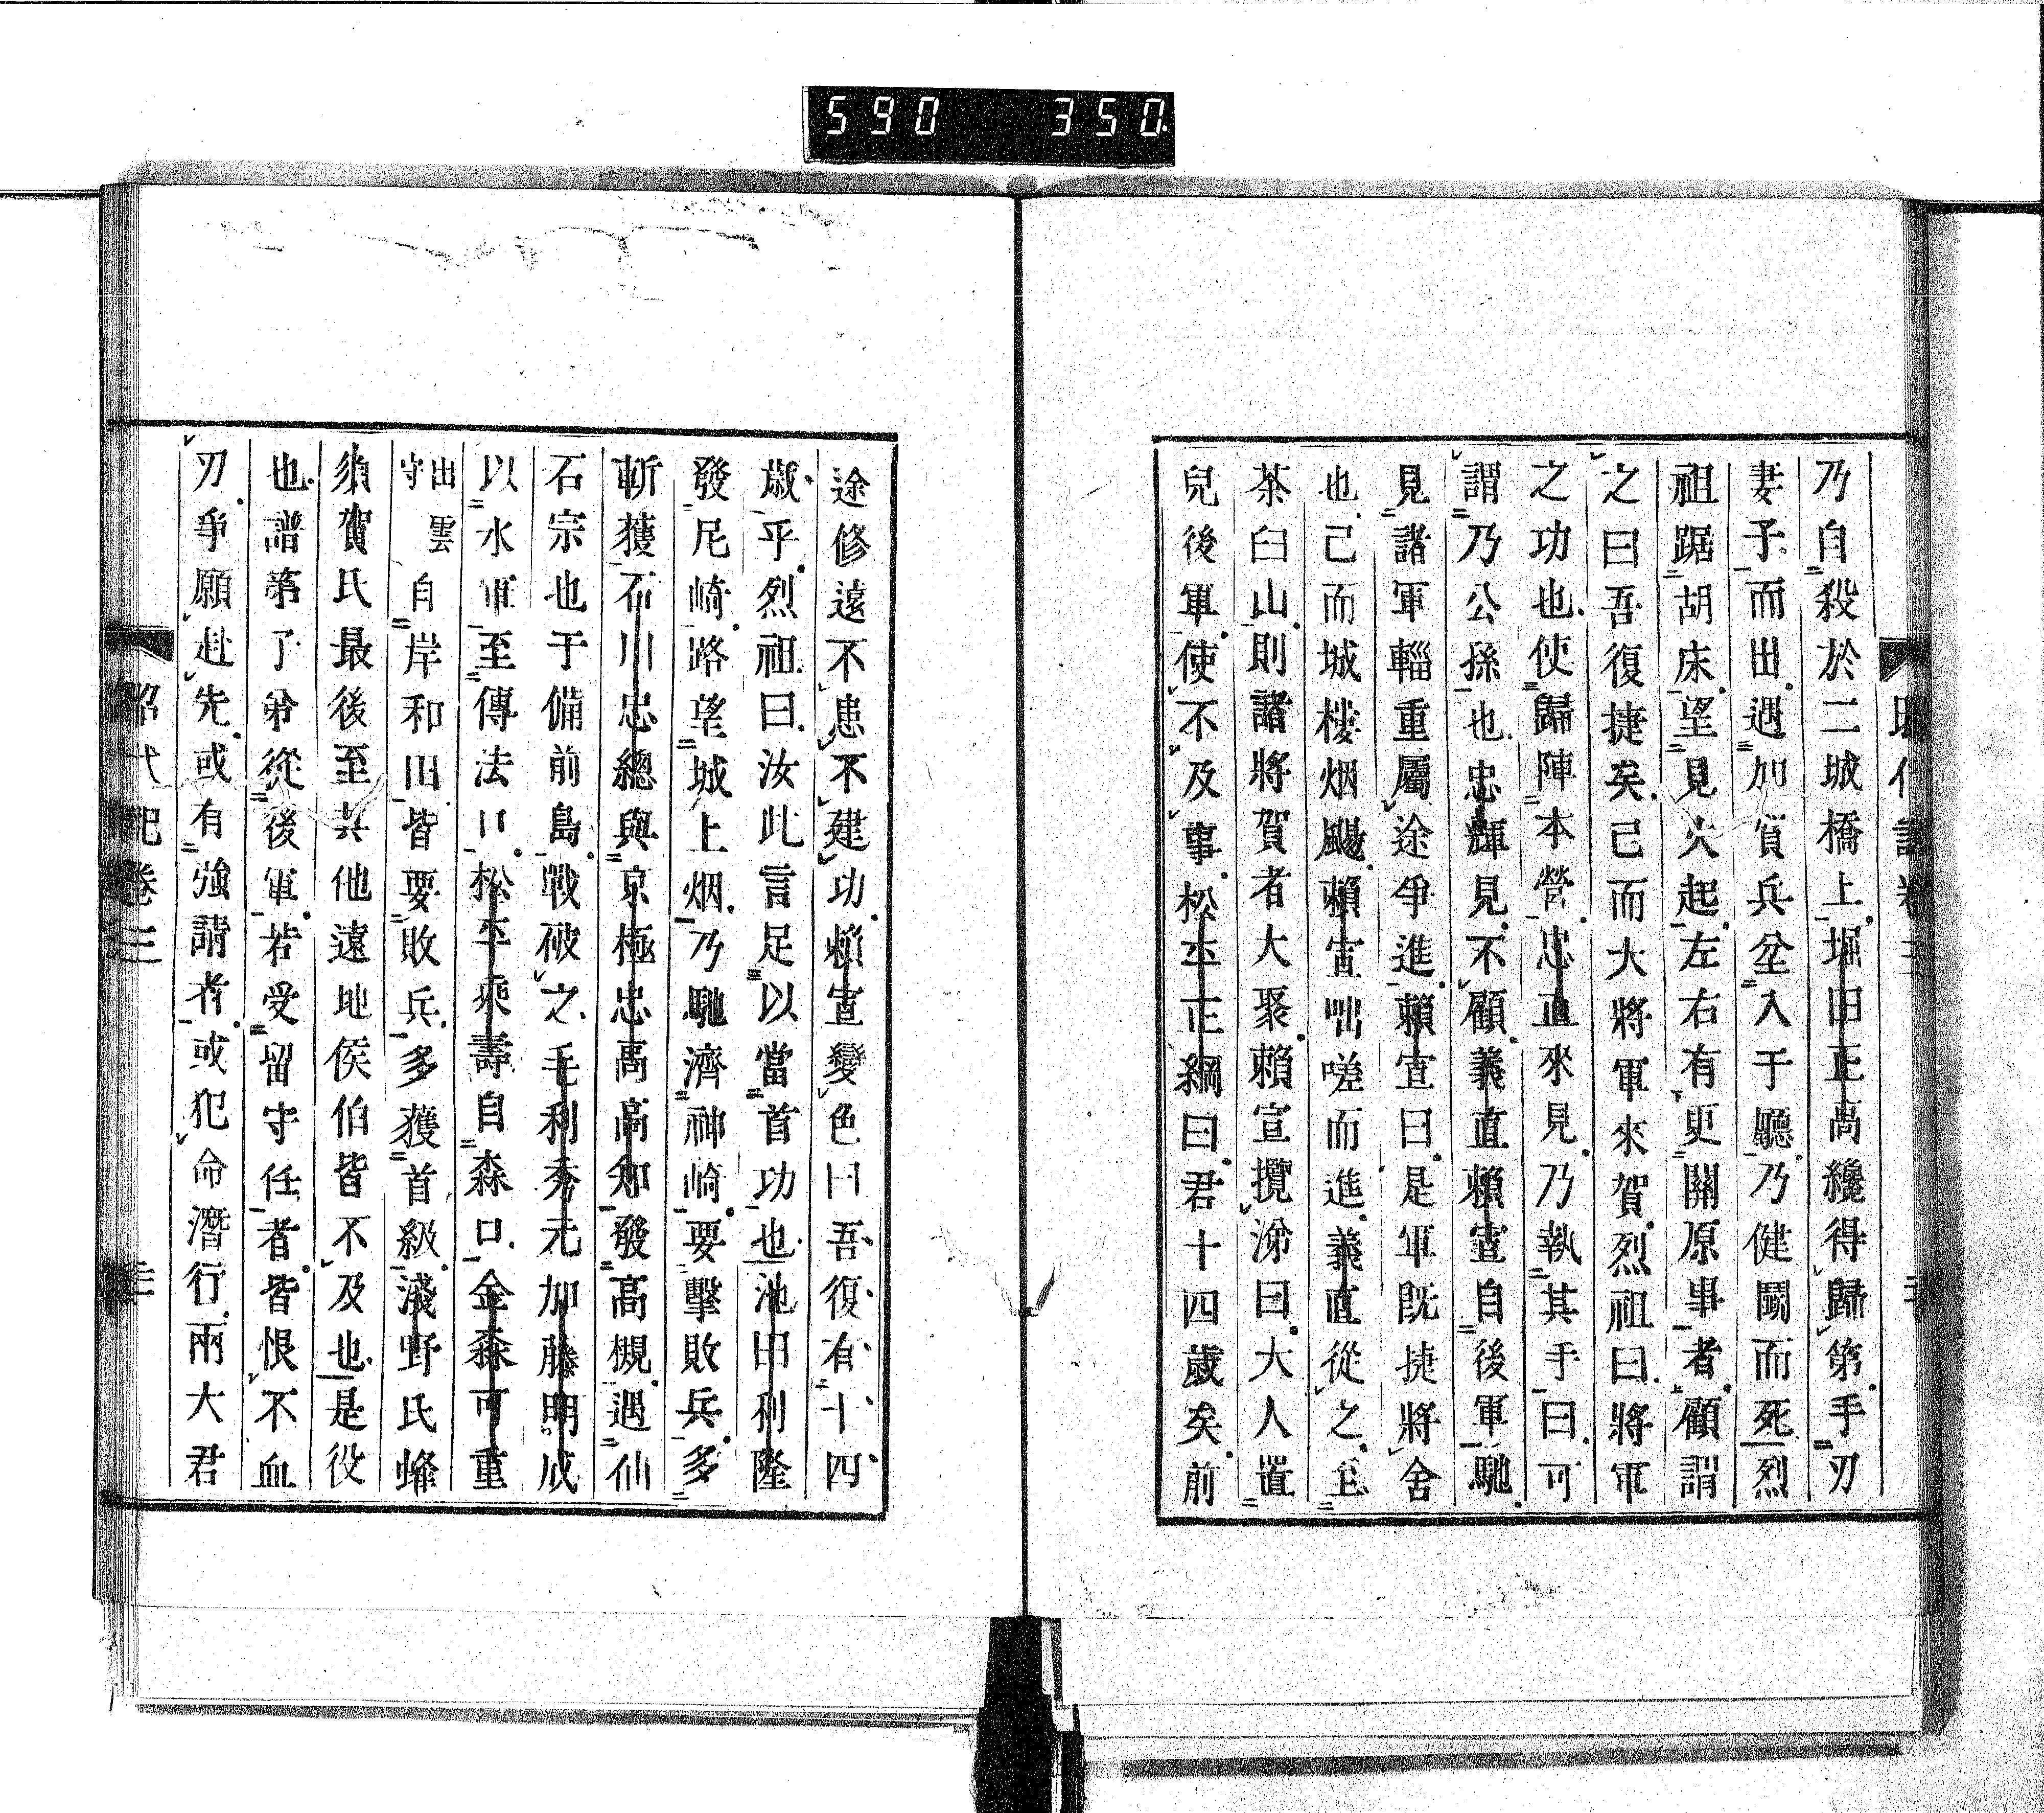 590 350
乃自殺於二城橋上堀田正高纔得歸第手刃
妻子而出遇加賀兵坌入于廳乃健鬪而死烈
祖踞胡床望見火起左右有更關原事者顧謂
之曰吾復捷矣已而大將軍來賀烈祖曰將軍
之功也使歸陣本營忠直來見乃執其手曰可
謂乃公孫也忠輝見不顧義直賴宣自後軍馳
見諸軍輜重屬途爭進賴宣曰是軍既捷將舍
也已而城樓烟颺賴宣咄嗟而進義直從之至
茶臼山則諸將賀者大聚賴宣攬涕曰大人置
兒後軍使不及事松平正綱曰君十四歲矣前
途修遠不患不建功賴宣變色曰吾復有十四
歲乎烈祖曰汝此言足以當首功也池田利隆
發尼崎路望城上烟乃馳濟神崎要擊敗兵多
斬獲石川忠總與京極忠高高知發高槻遇仙
石宗也于備前島戰破之毛利秀元加藤明成
以水軍至傳法口松平乘壽自森口金森可重
出雲守自岸和田皆要敗兵多獲首級淺野氏蜂
須賀氏最後至其他遠地侯伯皆不及也是役
也譜第了弟從後軍若受留守任者皆恨不血
刃爭願赴先或有強請者或犯命潛行兩大君
昭代記卷三